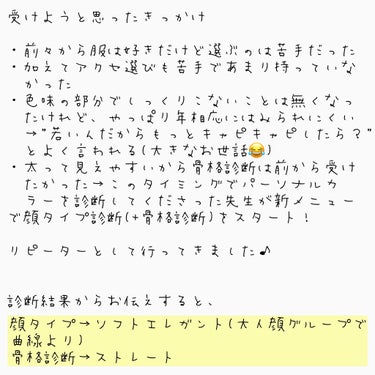 受けようと思ったきっかけ
・前々から服は好きだけど選ぶのは苦手だった
・加えてアクセ選びも苦手であまり持っていな
かった
・色味の部分でしっくりこないことは無くなっ
たけれど、やっぱり年相応にはみられにくい
→"若いんだからもっとキャピキャピしたら？"
とよく言われる(大きなお世話😂)
・太って見えやすいから骨格診断は前から受け
たかった→このタイミングでパーソナルカ
ラーを診断してくださった先生が新メニュー
で顔タイプ診断(+骨格診断)をスタート！
リピーターとして行ってきました♪
診断結果からお伝えすると、
顔タイプ→ソフトエレガント(大人顔グループで
曲線より)
骨格診断→ストレート